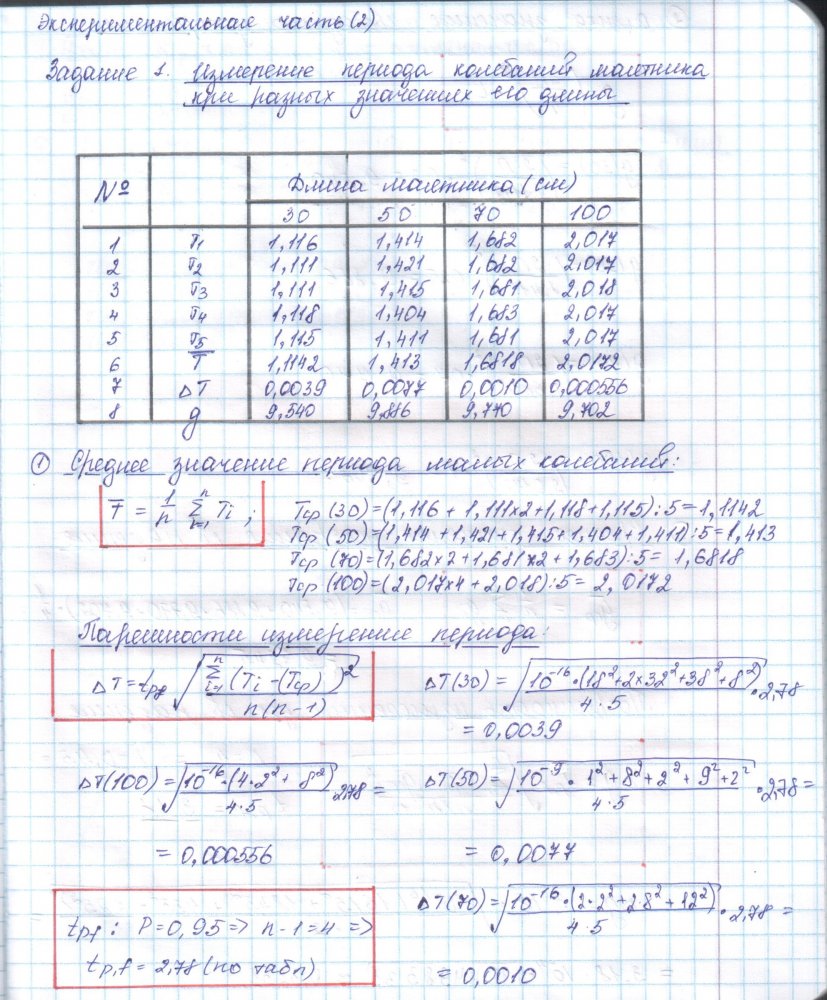 Экспериментальная часть (2)
Задание 1. Измерение периода колебаний маятника
при разных значениях его длины
№ Длина маятника (см)
30 50 70 100
1 T1 1,116 1,414 1,682 2,017
2 T2 1,111 1,421 1,682 2,017
3 T3 1,111 1,415 1,681 2,018
4 T4 1,118 1,404 1,683 2,017
5 T5 1,115 1,411 1,681 2,017
6 T̅ 1,1142 1,413 1,6818 2,0172
7 ΔT 0,0039 0,0077 0,0010 0,000556
8 g 9,540 9,886 9,770 9,702
① Среднее значение периода малых колебаний:
T̅ = 1/n Σ(i=1)^n Ti ; Tср (30)=(1,116 + 1,111x2+1,118+1,115):5=1,1142
Tср (50)=(1,414 +1,421+1,415+1,404+1,411):5=1,413
Tср (70)=(1,682x2+1,681x2+1,683):5= 1,6818
Tср (100)=(2,017x4+2,018):5= 2,0172
Парешности измерение периода:
ΔT=tpf √(Σ(i=1)^n (Ti-(Tср))²/n(n-1)) ΔT(30) = √(10⁻¹⁶·(18²+2x32²+38²+8²)/4·5)·2,78
= 0,0039
ΔT(100)=√(10⁻¹⁶·(4·2²+ 8²)/4·5)·2,78= ΔT(50)=√(10⁻⁹·1²+8²+2²+9²+2²/4·5)·2,78=
= 0,000556 = 0,0077
tpf: P=0,95=> n-1=4 => ΔT(70)=√(10⁻¹⁶·(2·2²+2·8²+12²)/4·5)·2,78=
tp,f=2,78(по табл) = 0,0010